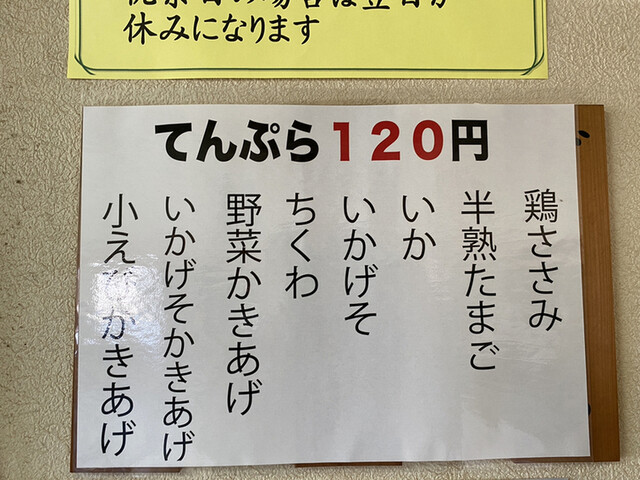 休みになります
てんぷら120円
鶏ささみ
半熟たまご
いか
いかげそ
ちくわ
野菜かきあげ
いかげそかきあげ
小えびかきあげ